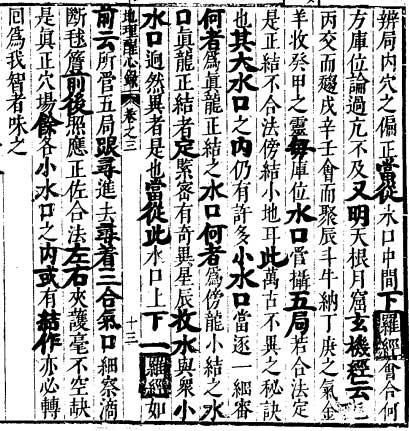 辨局内穴之偏正當從水口中間下羅經會合何
方庫位論過亢不及又明天根月窟玄機經云乙
丙交而趨戌辛壬會而聚辰斗牛納丁庚之氣金
羊收癸甲之靈每庫位水口管攝五局若合法定
是正結不合法傍結小地耳此萬古不異之秘訣
也其大水口之内仍有許多小水口當逐一細審
何者爲眞龍正結之水口何者爲傍龍小結之水
口眞龍正結者定緊密有奇異星辰收水與衆小
水口逈然異者是也當從此水口上下一羅經如
地理醒心錄 卷之三 十三
前云所管五局跟尋進去尋着三合氣口細察滴
斷毬簷前後照應正佐合法左右夾護毫不空缺
是眞正穴場餘各小水口之内或有結作亦必轉
回爲我智者味之